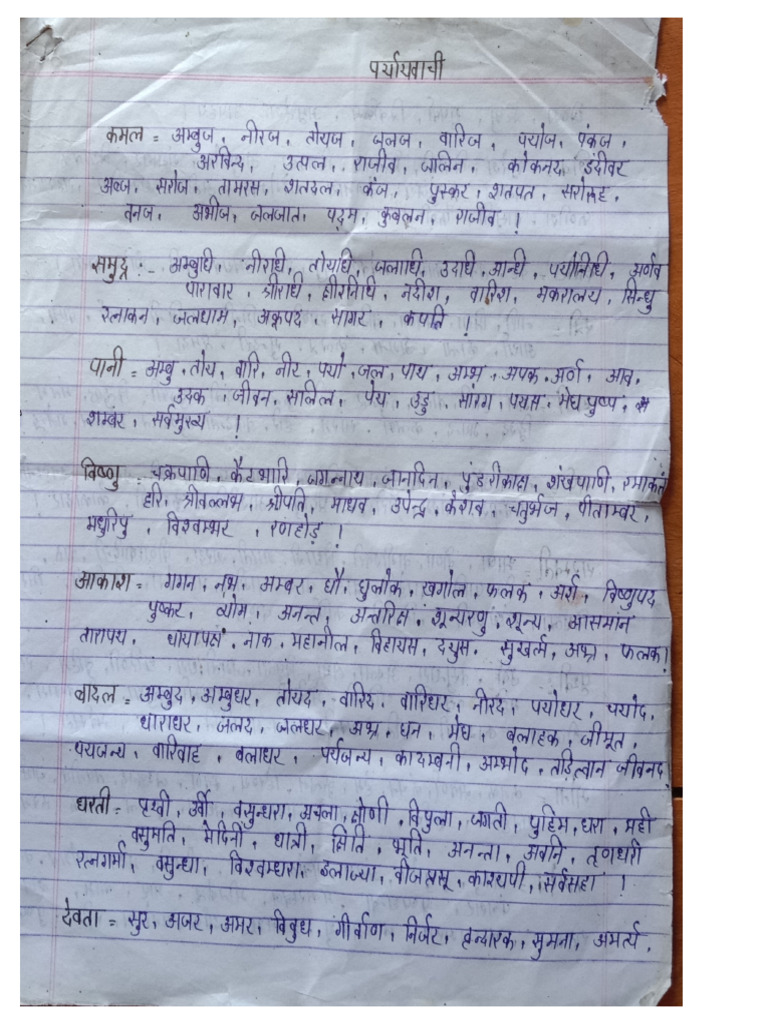 पर्यायवाची
कमल = अम्बुज, नीरज, तोयज, जलज, वारिज, पयोज, पंकज,
अरविन्द, उत्पल, राजीव, जालिन, कोकनद, इंदीवर
अब्ज, सरोज, तामरस, शतदल, कंज, पुस्कर, शतपत, सरोरूह,
वनज, अभोज, जलजात, पद्म, कुवलन, राजीव !
समुद्र :- अम्बुधी, नीराधी, तोयधि, जलाधि, उदाधी, आब्धी, पयोनिधी, अर्णव
पारावार, श्रीराधी, क्षीरनिधि, नदीश, वारिश, मकरालय, सिन्धु
रत्नाकन, जलधाम, अकूपद, सागर, कंपति !
पानी = अम्बु, तोय, वारि, नीर, पयो, जल, पाथ, अम्भ, अपक, अर्ण, आव,
उदक, जीवन, सलिल, पेय, उडु, सारंग, पयस, मेघ पुष्प,
शम्बर, सर्वमुख्य !
विष्णु = चक्रपाणि, कैटभारि, जगन्नाथ, जानदिन, पुंडरीकाक्ष, शंखपाणि, रमाकतं
हरि, श्रीवल्लभ, श्रीपति, माधव, उपेन्द्र, केशव, चतुर्भज, पीताम्बर,
मधुरिपु, विश्वम्भर, रणहोड़ !
आकाश = गगन, नभ, अम्बर, धौ, धुलोक, खगोल, फलक, अर्श, विष्णुपद
पुष्कर, व्योम, अनन्त, अन्तरिक्ष, शून्यरणु, शून्य, आसमान
तारापथ, धायापक्ष, नाक, महानील, विहायस, दयुस, सुखर्त्म, अभ्र, फलक!
बादल = अम्बुद, अम्बुधर, तोयद, वारिद, वारिधर, नीरद, पयोधर, पयोद,
धाराधर, जलद, जलधर, अभ्र, धन, मेघ, बलाहक, जीमूत,
पयजन्य, वारिवाह, बलाधर, पर्यजन्य, कादम्बनी, अम्भोद, तड़ित्वान जीवनद
धरती = पृथ्वी, उर्वी, वसुन्धरा, अचला, क्षोणी, विपुला, जगती, पुहिम, धरा, मही
वसुमति, मेदिनी, धात्री, क्षिति, भूति, अनन्ता, अवनि, तृणधरी
रत्नगर्मा, वसुन्धा, विश्वम्धरा, इलाज्या, बीजत्रसू, काश्यपी, सर्वसहा !
देवता = सुर, अजर, अमर, विबुध, गीर्वाण, निर्जर, वृन्दारक, सुमना, अमर्त्य,